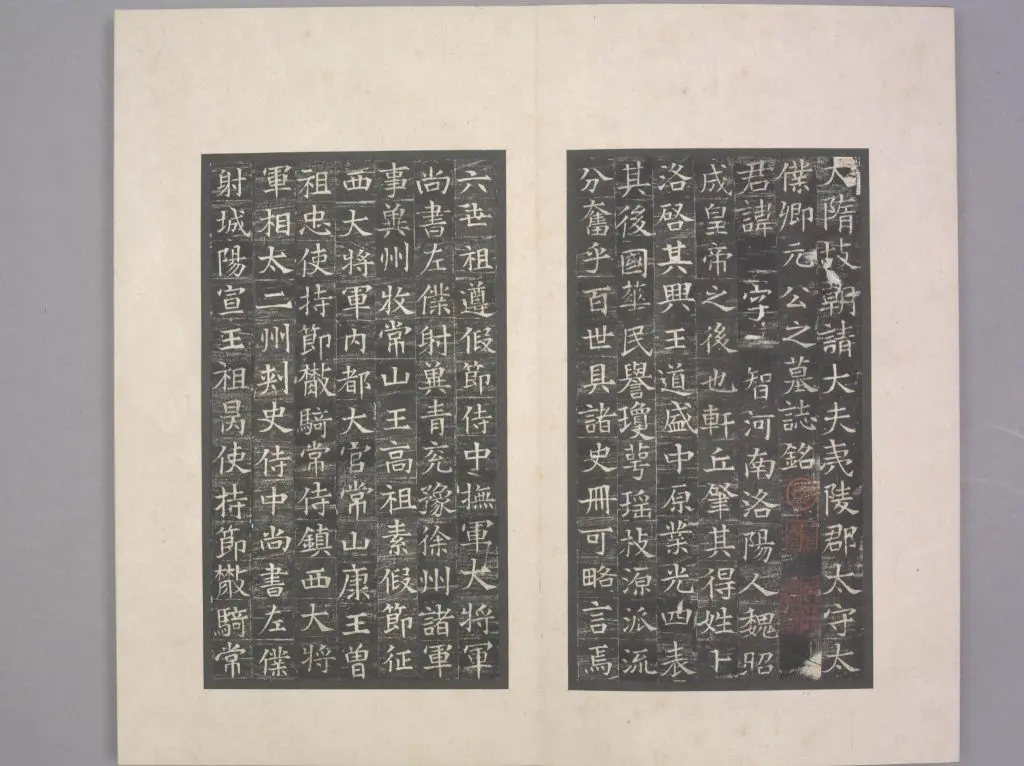 大隋故朝請大夫夷陵郡太守太
僕卿元公之墓誌銘
君諱□字□智河南洛陽人魏昭
成皇帝之後也軒丘肇其得姓卜
洛啓其興王道盛中原業光四表
其後國華民譽瓊萼瑤枝源派流
分奮乎百世具諸史冊可略言焉
六世祖遵假節侍中撫軍大將軍
尚書左僕射冀青兗豫徐州諸軍
事冀州牧常山王高祖素假節征
西大將軍內都大官常山康王曾
祖忠使持節散騎常侍鎮西大將
軍相太二州刺史侍中尚書左僕
射城陽宣王祖昺使持節散騎常